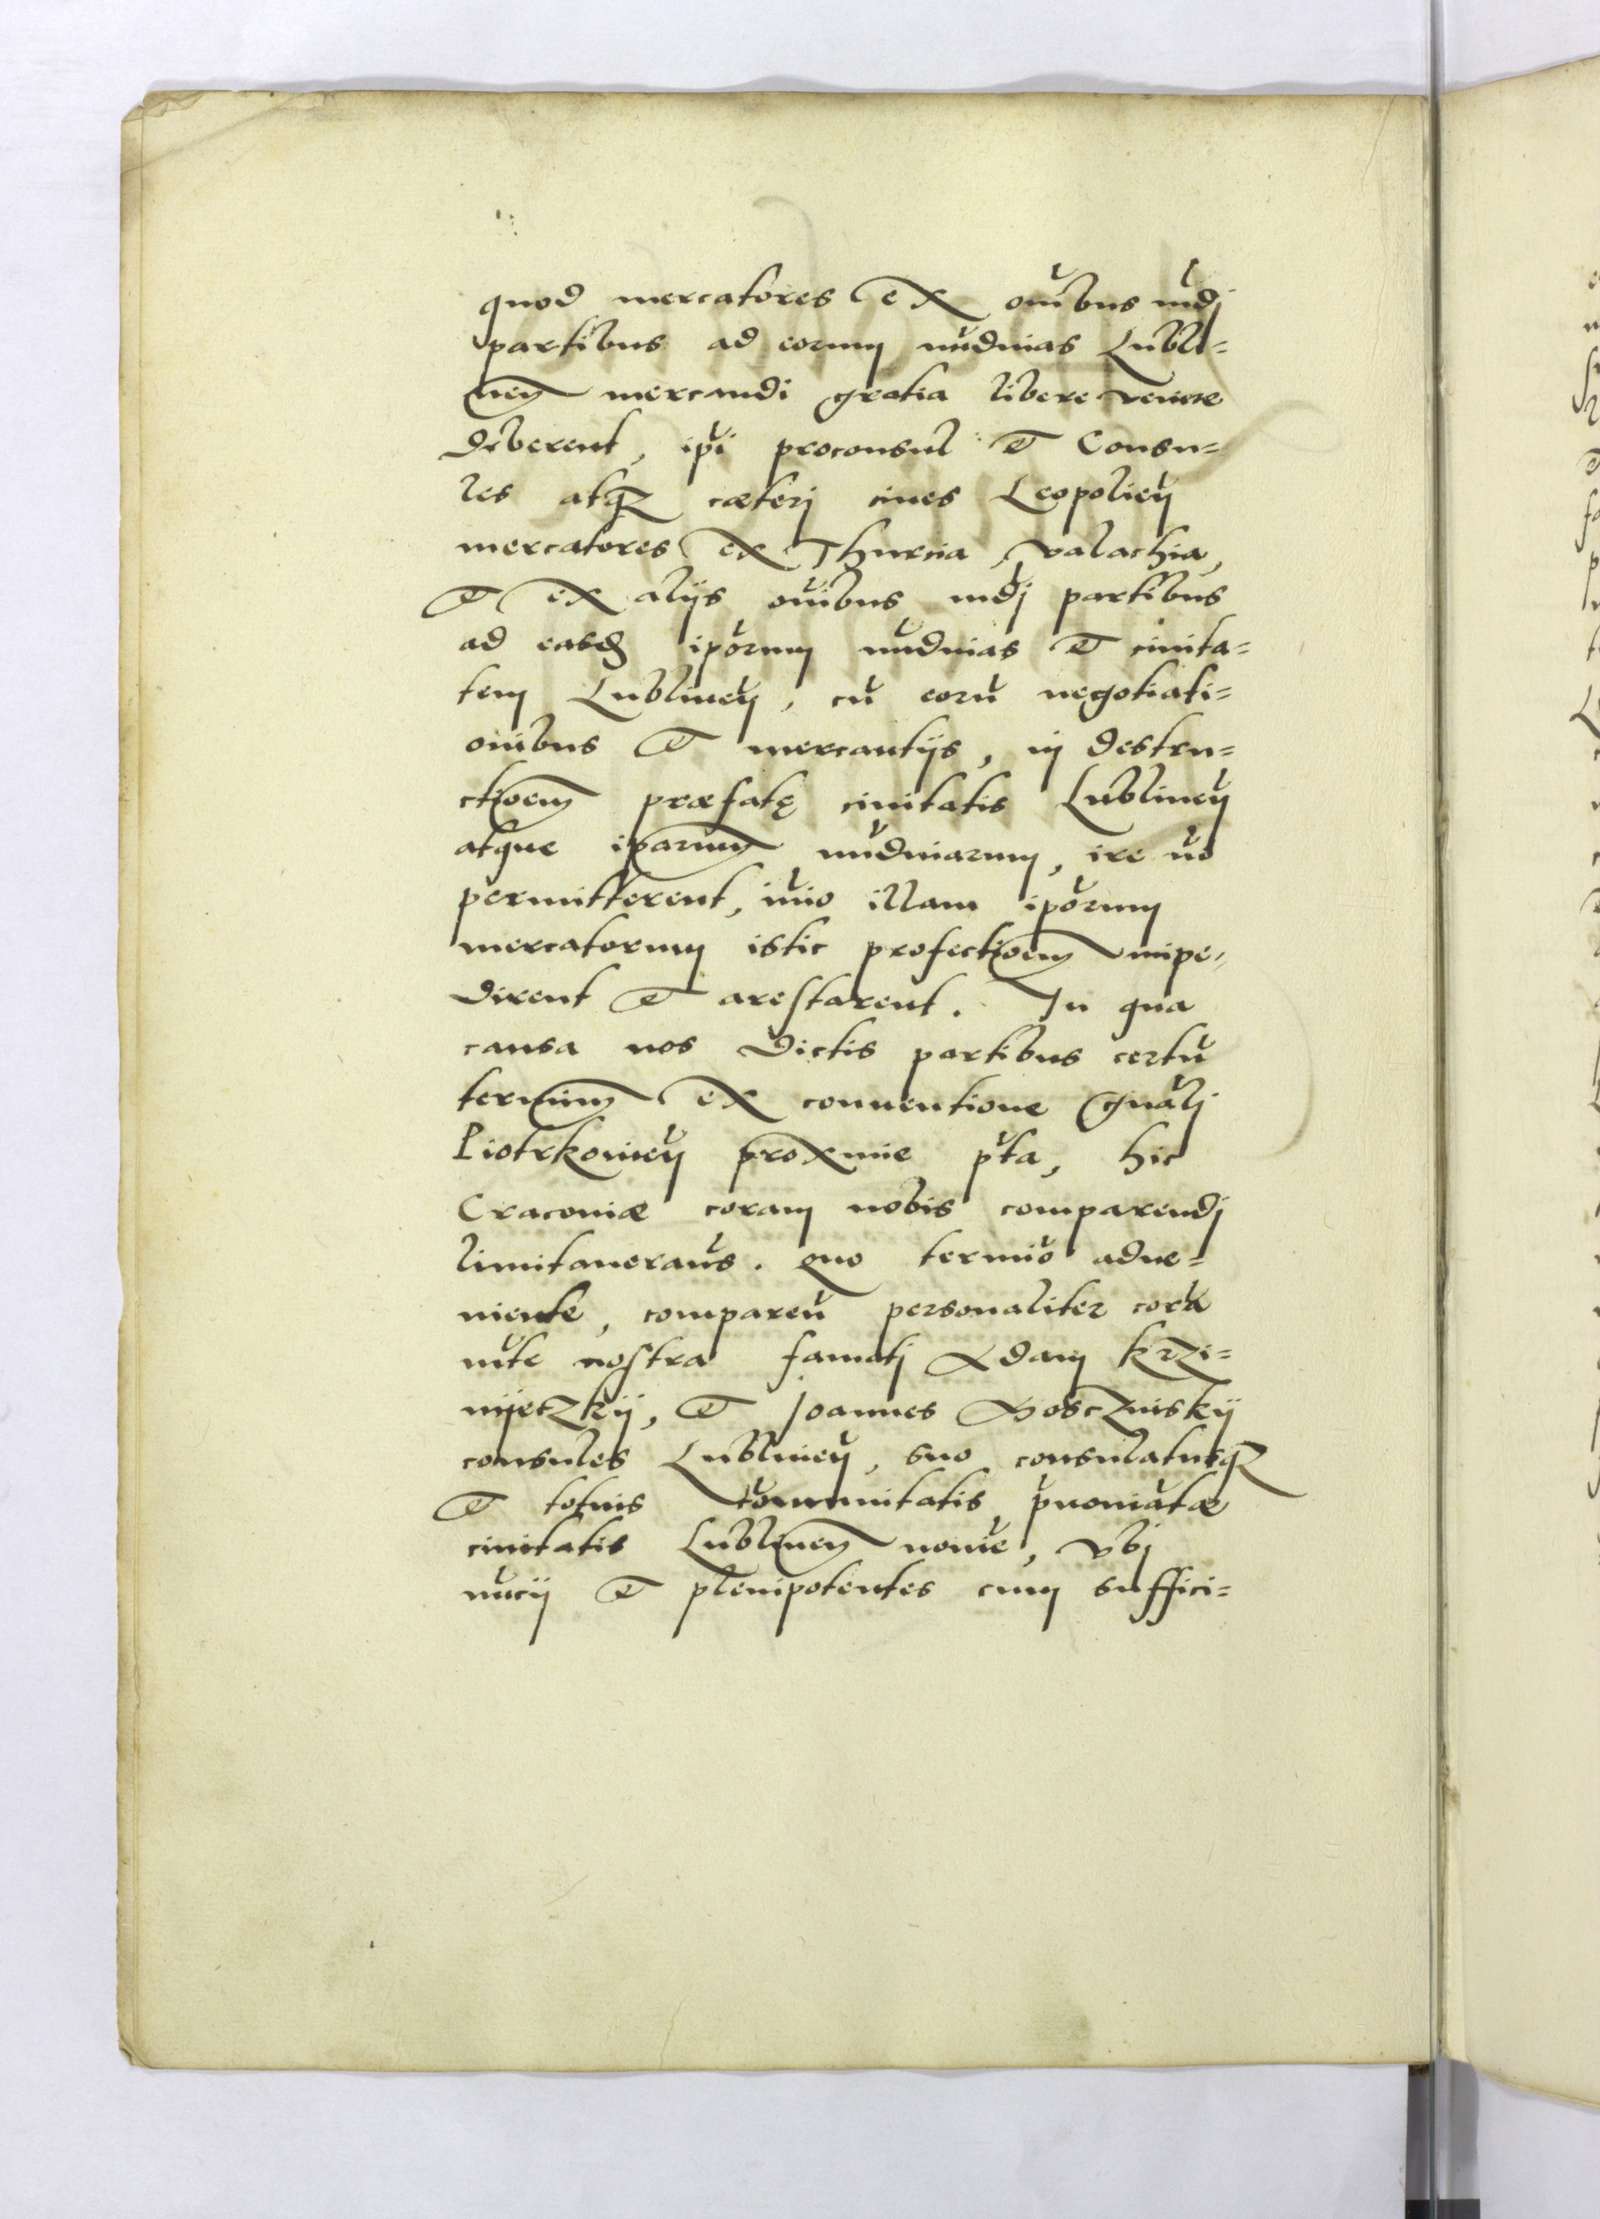 quod mercatores ex oib̃us mdj
partibus ad eorum nũdinas Lubli=
neñ mercandi gratia libere venire
deberent, ip̃i proconsul et Consu=
les atqʒ cæterj ciues Leopolieñ
mercatores ex Thurcia, valachia,
et ex alijs oĩbus mdj partibus
ad easdẽ ip̃orum nũdinas et ciuita=
tem Lublineñ, cũ eorũ negotiati=
onibus et mercantijs, in destru=
ctioem̃ præfatę ciuitatis Lublineñ
atque iparum̃ nũdinarum, ire nõ
permitterent, im̃o illam ip̃orum
mercatorum istic profectioem̃ impe=
dirent et arestarent. In qua
causa nos dictis partibus certũ
terminum̃ ex conuentione gñalj
Piotrkouieñ proxime p̃ta, hic
Cracouiæ coram nobis comparendj
limitaueram̃s. quo termiõ adue=
niente, compareñ personaliter corã
m̃te nostra famatj Adam krzi=
nijeczkij, et Joannes Gosczinskij
consules Lublineñ, suo consulatusqʒ
et totius com̃unitatis p̃noiatæ
ciuitatis Lublineñ noĩe, vbj
nũcij et plenipotentes cum suffici=